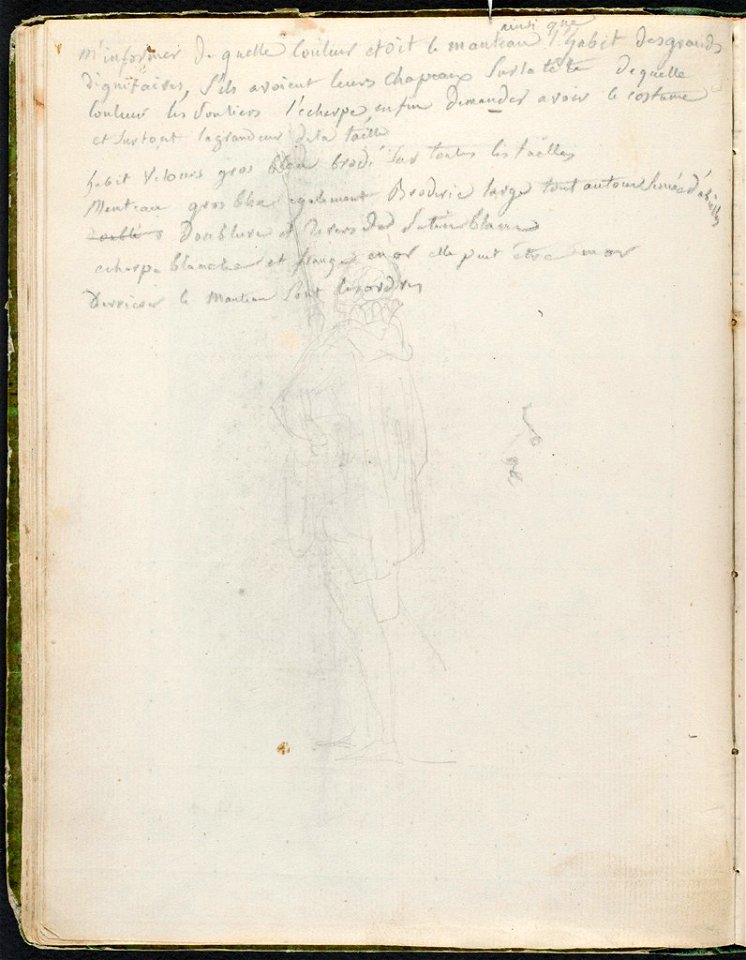 ainsi que
m'informer de quelle Couleur etoit le manteau l'habit des grands
dignitaires, s'ils avoient leurs chapeaux sur la tête de quelle
Couleur les Souliers l'écharpe enfin demander a voir le costume
et surtout la grandeur de la taille
habit Velours gros bleu brodé sur toutes les tailles
Menteau gros bleu egalement Broderie large tout autour Semée d'abeilles
Doublure et revers de Satin blanc
echarpe blanche et frange en or elle peut être en or
Derriere le Manteau sont les ordres